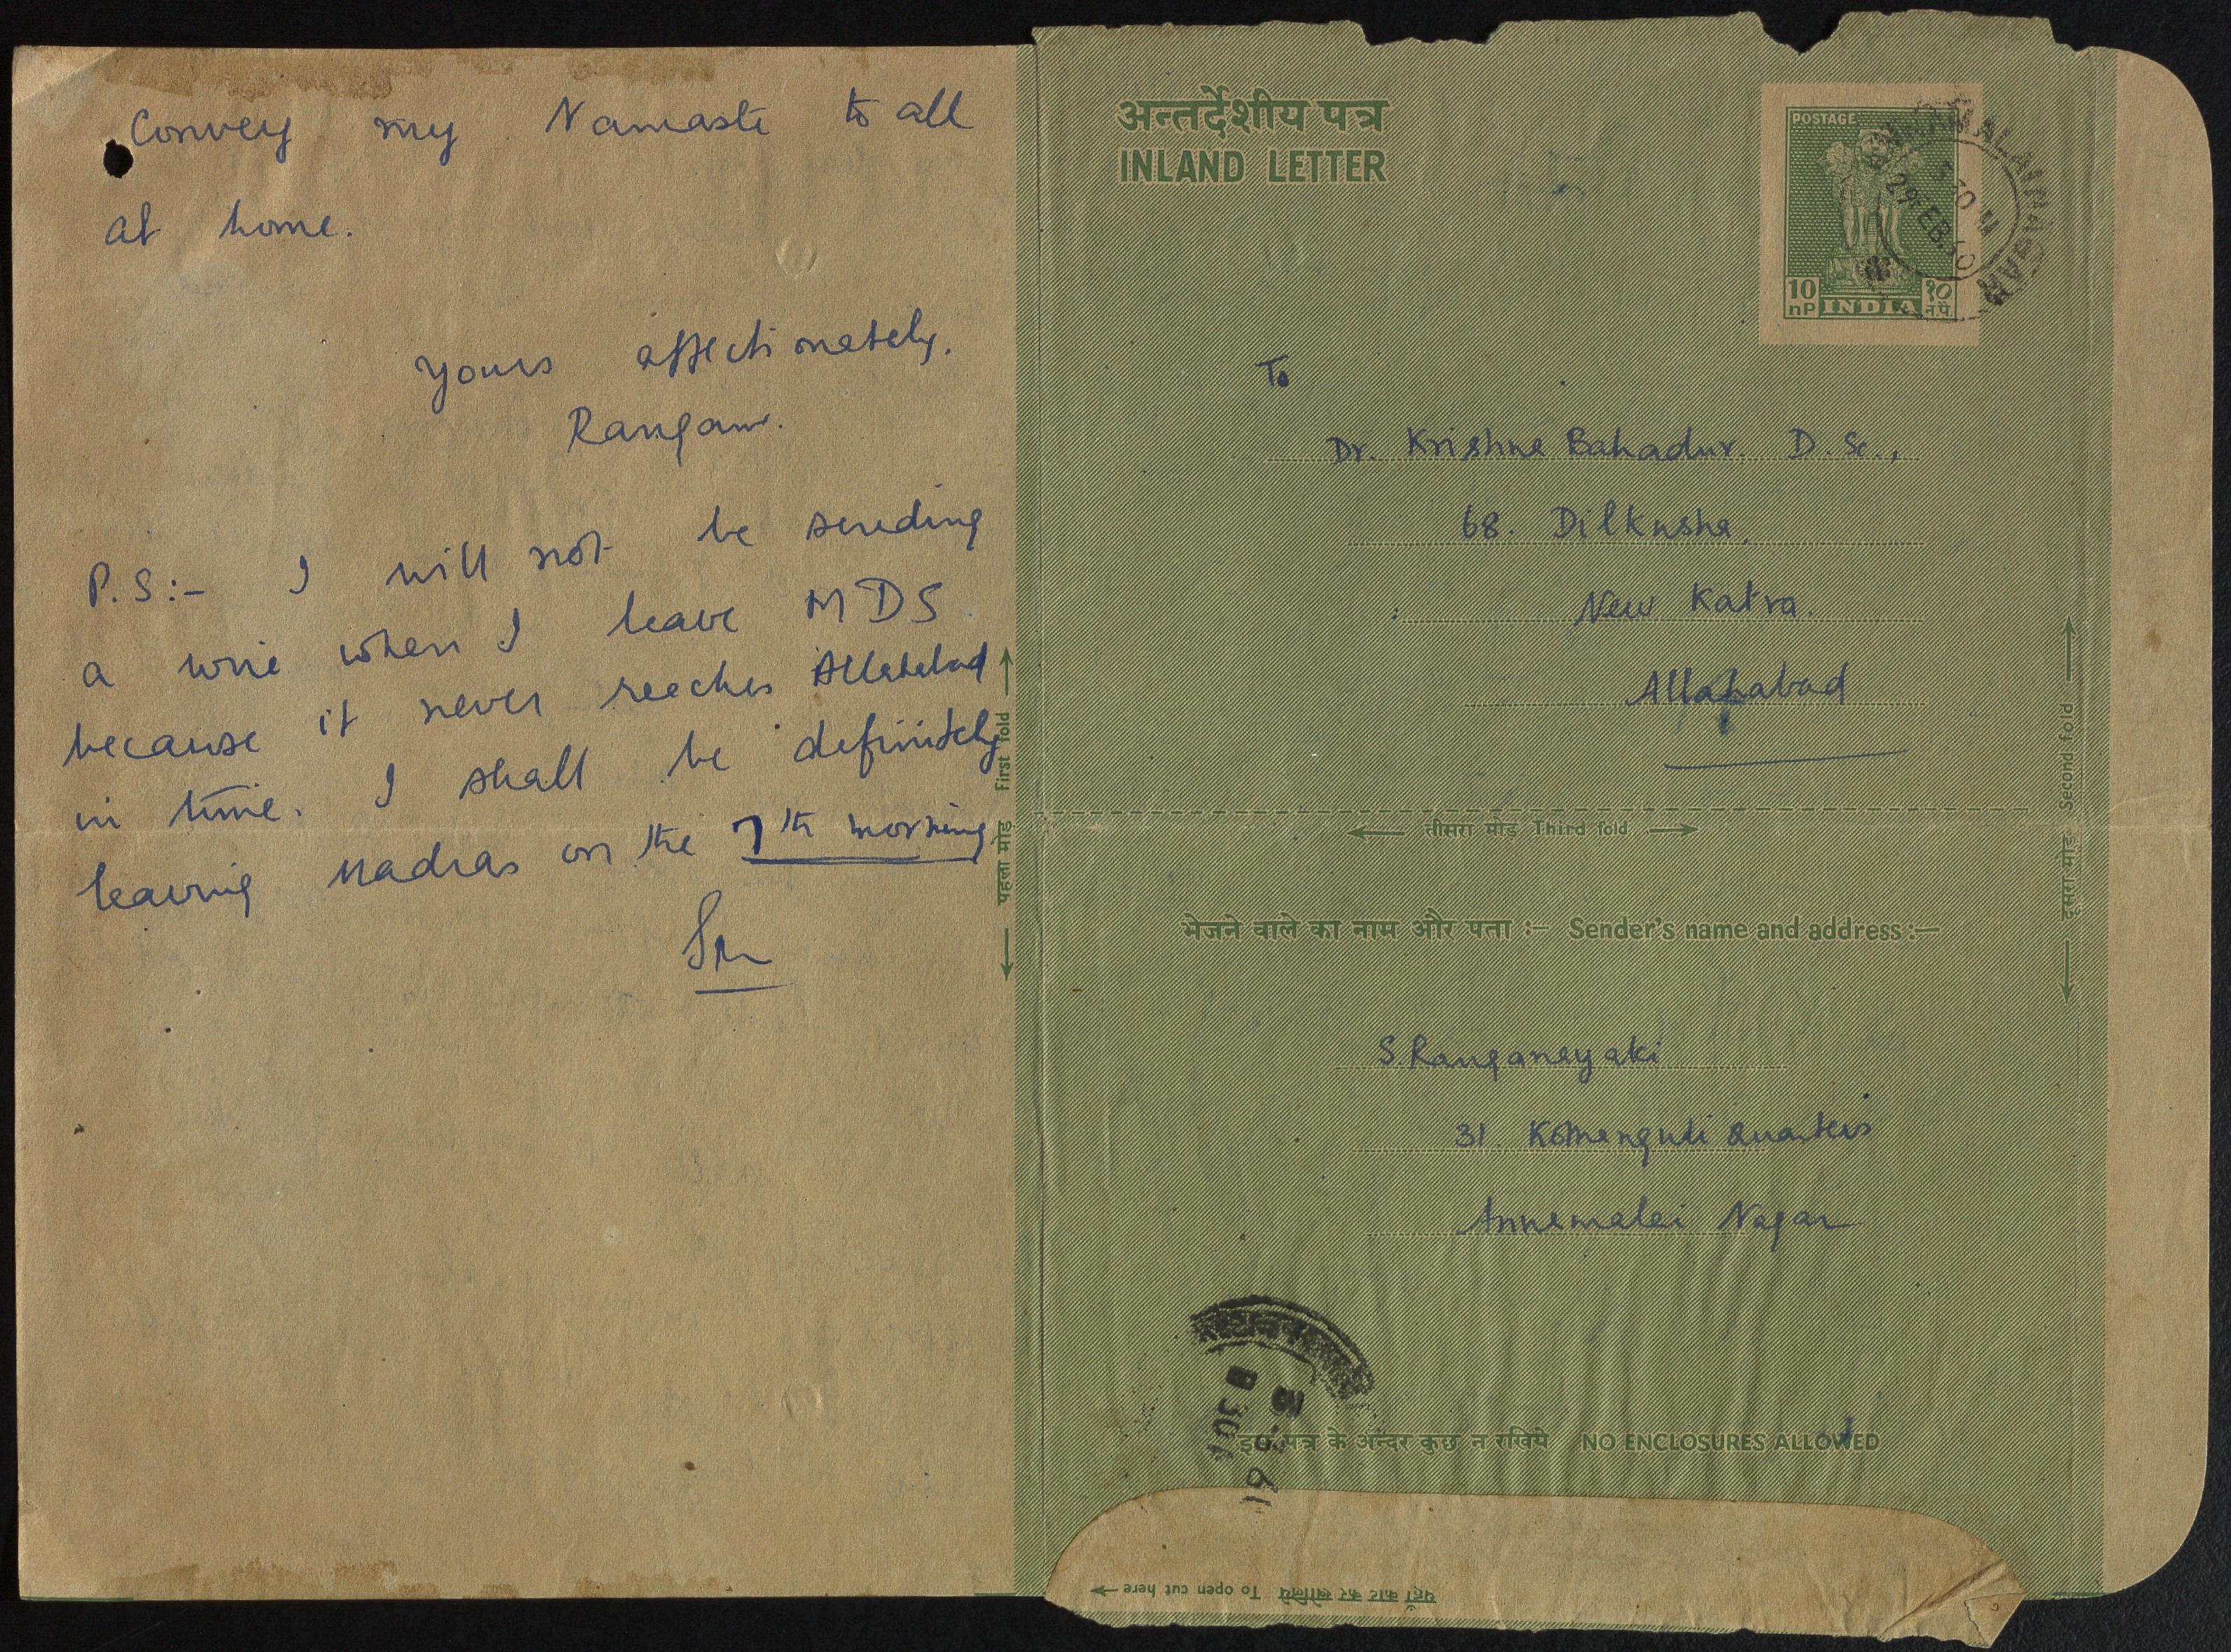 Convey my Namaste to all
at home.
Yours affectionately,
Rangam.
P.S:- I will not be sending
a wire when I leave MDS
because it never reaches Allahabad
in time. I shall be definitely
leaving Madras on the 7th morning
अन्तर्देशीय पत्र
INLAND LETTER
POSTAGE
10 nP INDIA १० न.पै.
ANNAMALAINAGAR
29 FEB. 60
To
Dr. Krishna Bahadur. D. Sc.,
68. Dilkusha,
New Katra.
Allahabad
पहला मोड़ First fold
दूसरा मोड़ Second fold
तीसरा मोड़ Third fold
भेजने वाले का नाम और पता :- Sender's name and address :-
S. Ranganayaki
31. Quarters
Annamalai Nagar
इस पत्र के अन्दर कुछ न रखिये NO ENCLOSURES ALLOWED
यहाँ काट कर खोलिये To open cut here